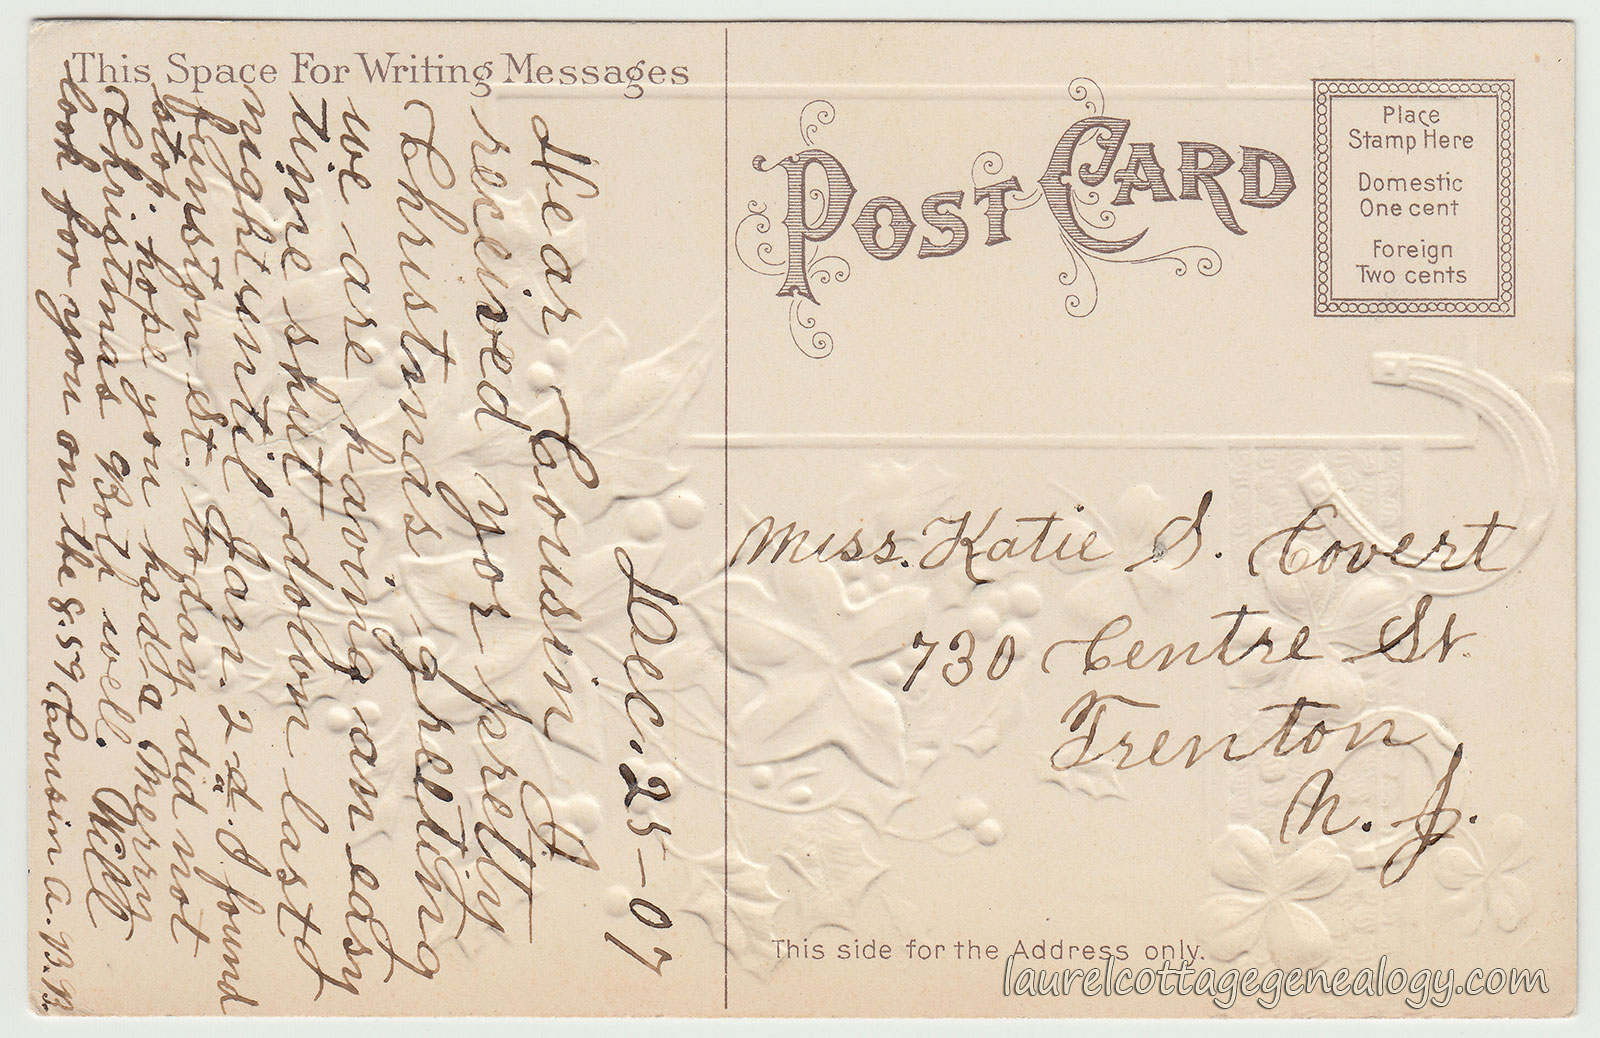 This Space For Writing Messages
Dec. 25-07
Dear Cousin I
received yor pretty
Christmas greeting
we are having an easy
time shut down last
night until Jan. 2d. I found
funston St. to day did not
stop. hope you had a Merry
Christmas Both well. Will
look for you on the 8.59 Cousin A. B. B.
POST CARD
Place
Stamp Here
Domestic
One cent
Foreign
Two cents
Miss. Katie S. Covert
730 Centre St.
Trenton
N. J.
This side for the Address only.
laurelcottagegenealogy.com